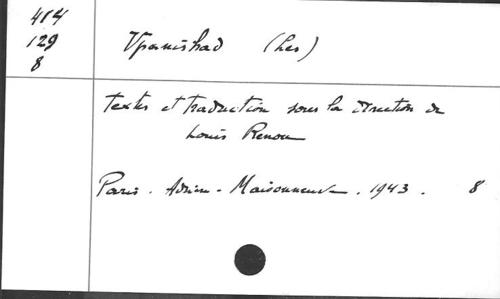 414
129
8
Upanishad (Les)
Textes et traduction sous la direction de
Louis Renou
Paris. Adrien-Maisonneuve. 1943. 8